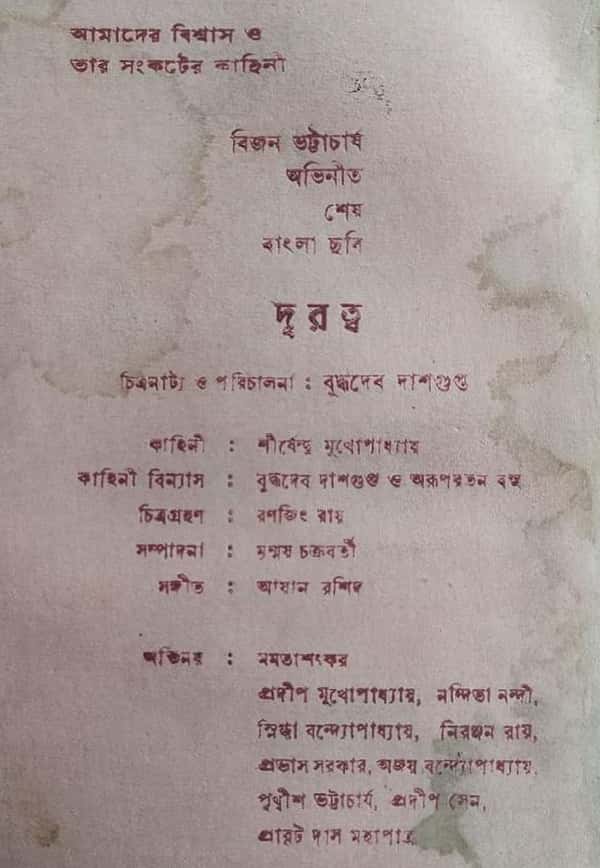 আমাদের বিশ্বাস ও
তার সংকটের কাহিনী
বিজন ভট্টাচার্য
অভিনীত
শেষ
বাংলা ছবি
দূরত্ব
চিত্রনাট্য ও পরিচালনা : বুদ্ধদেব দাশগুপ্ত
কাহিনী : শীর্ষেন্দু মুখোপাধ্যায়
কাহিনী বিন্যাস : বুদ্ধদেব দাশগুপ্ত ও অরূপরতন বসু
চিত্রগ্রহণ : রণজিৎ রায়
সম্পাদনা : মৃন্ময় চক্রবর্তী
সঙ্গীত : আয়ান রশিদ
অভিনয় : মমতাশংকর
প্রদীপ মুখোপাধ্যায়, নন্দিতা নন্দী,
স্নিগ্ধা বন্দ্যোপাধ্যায়, নিরঞ্জন রায়,
প্রভাস সরকার, অজয় বন্দ্যোপাধ্যায়,
পৃথ্বীশ ভট্টাচার্য, প্রদীপ সেন,
দাস মহাপাত্র